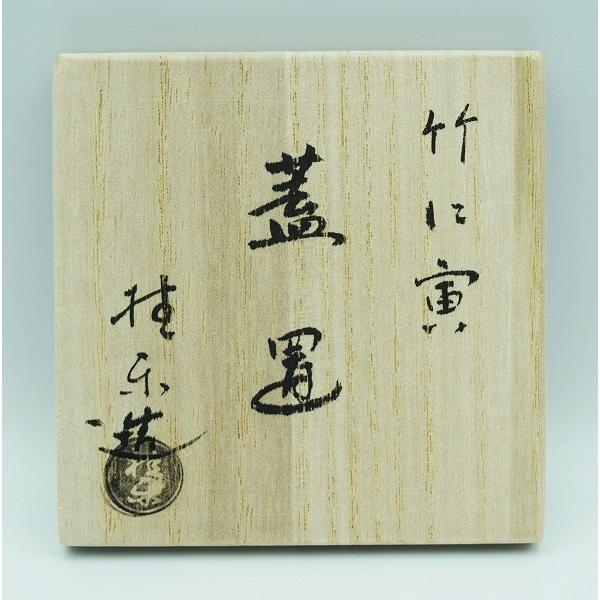 竹に寅
蓋置
桂楽造